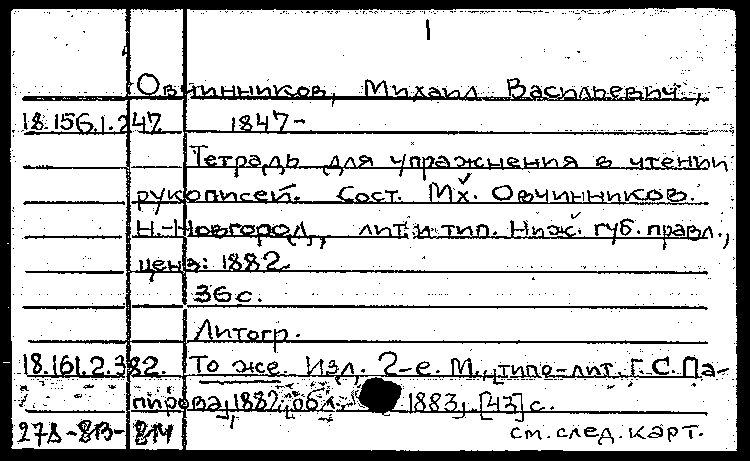 Овчинников, Михаил Васильевич,
18.156.1.247 1847-
Тетрадь для упражнения в чтении
рукописей. Сост. Мх. Овчинников.
Н.-Новгород, лит. и тип. Ниж. губ. правл.,
ценз: 1882.
36 с.
Литогр.
18.161.2.382. То же. Изд. 2-е. М., типо-лит. Г. С. Па-
пирова, 1882, обл. 1883, [43] с.
27Д-813-814 см. след. карт.